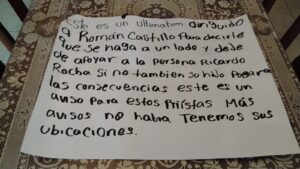 Este es un Ultimatum dirijuido
a Román Castillo Para decirle
que se haga a un lado y deje
de apoyar a la persona Ricardo
Rocha Si no tambien su hijo Pagara
las consecuencias este es un
aviso Para estos Priístas Más
avisos no habra Tenemos sus
ubicaciones.